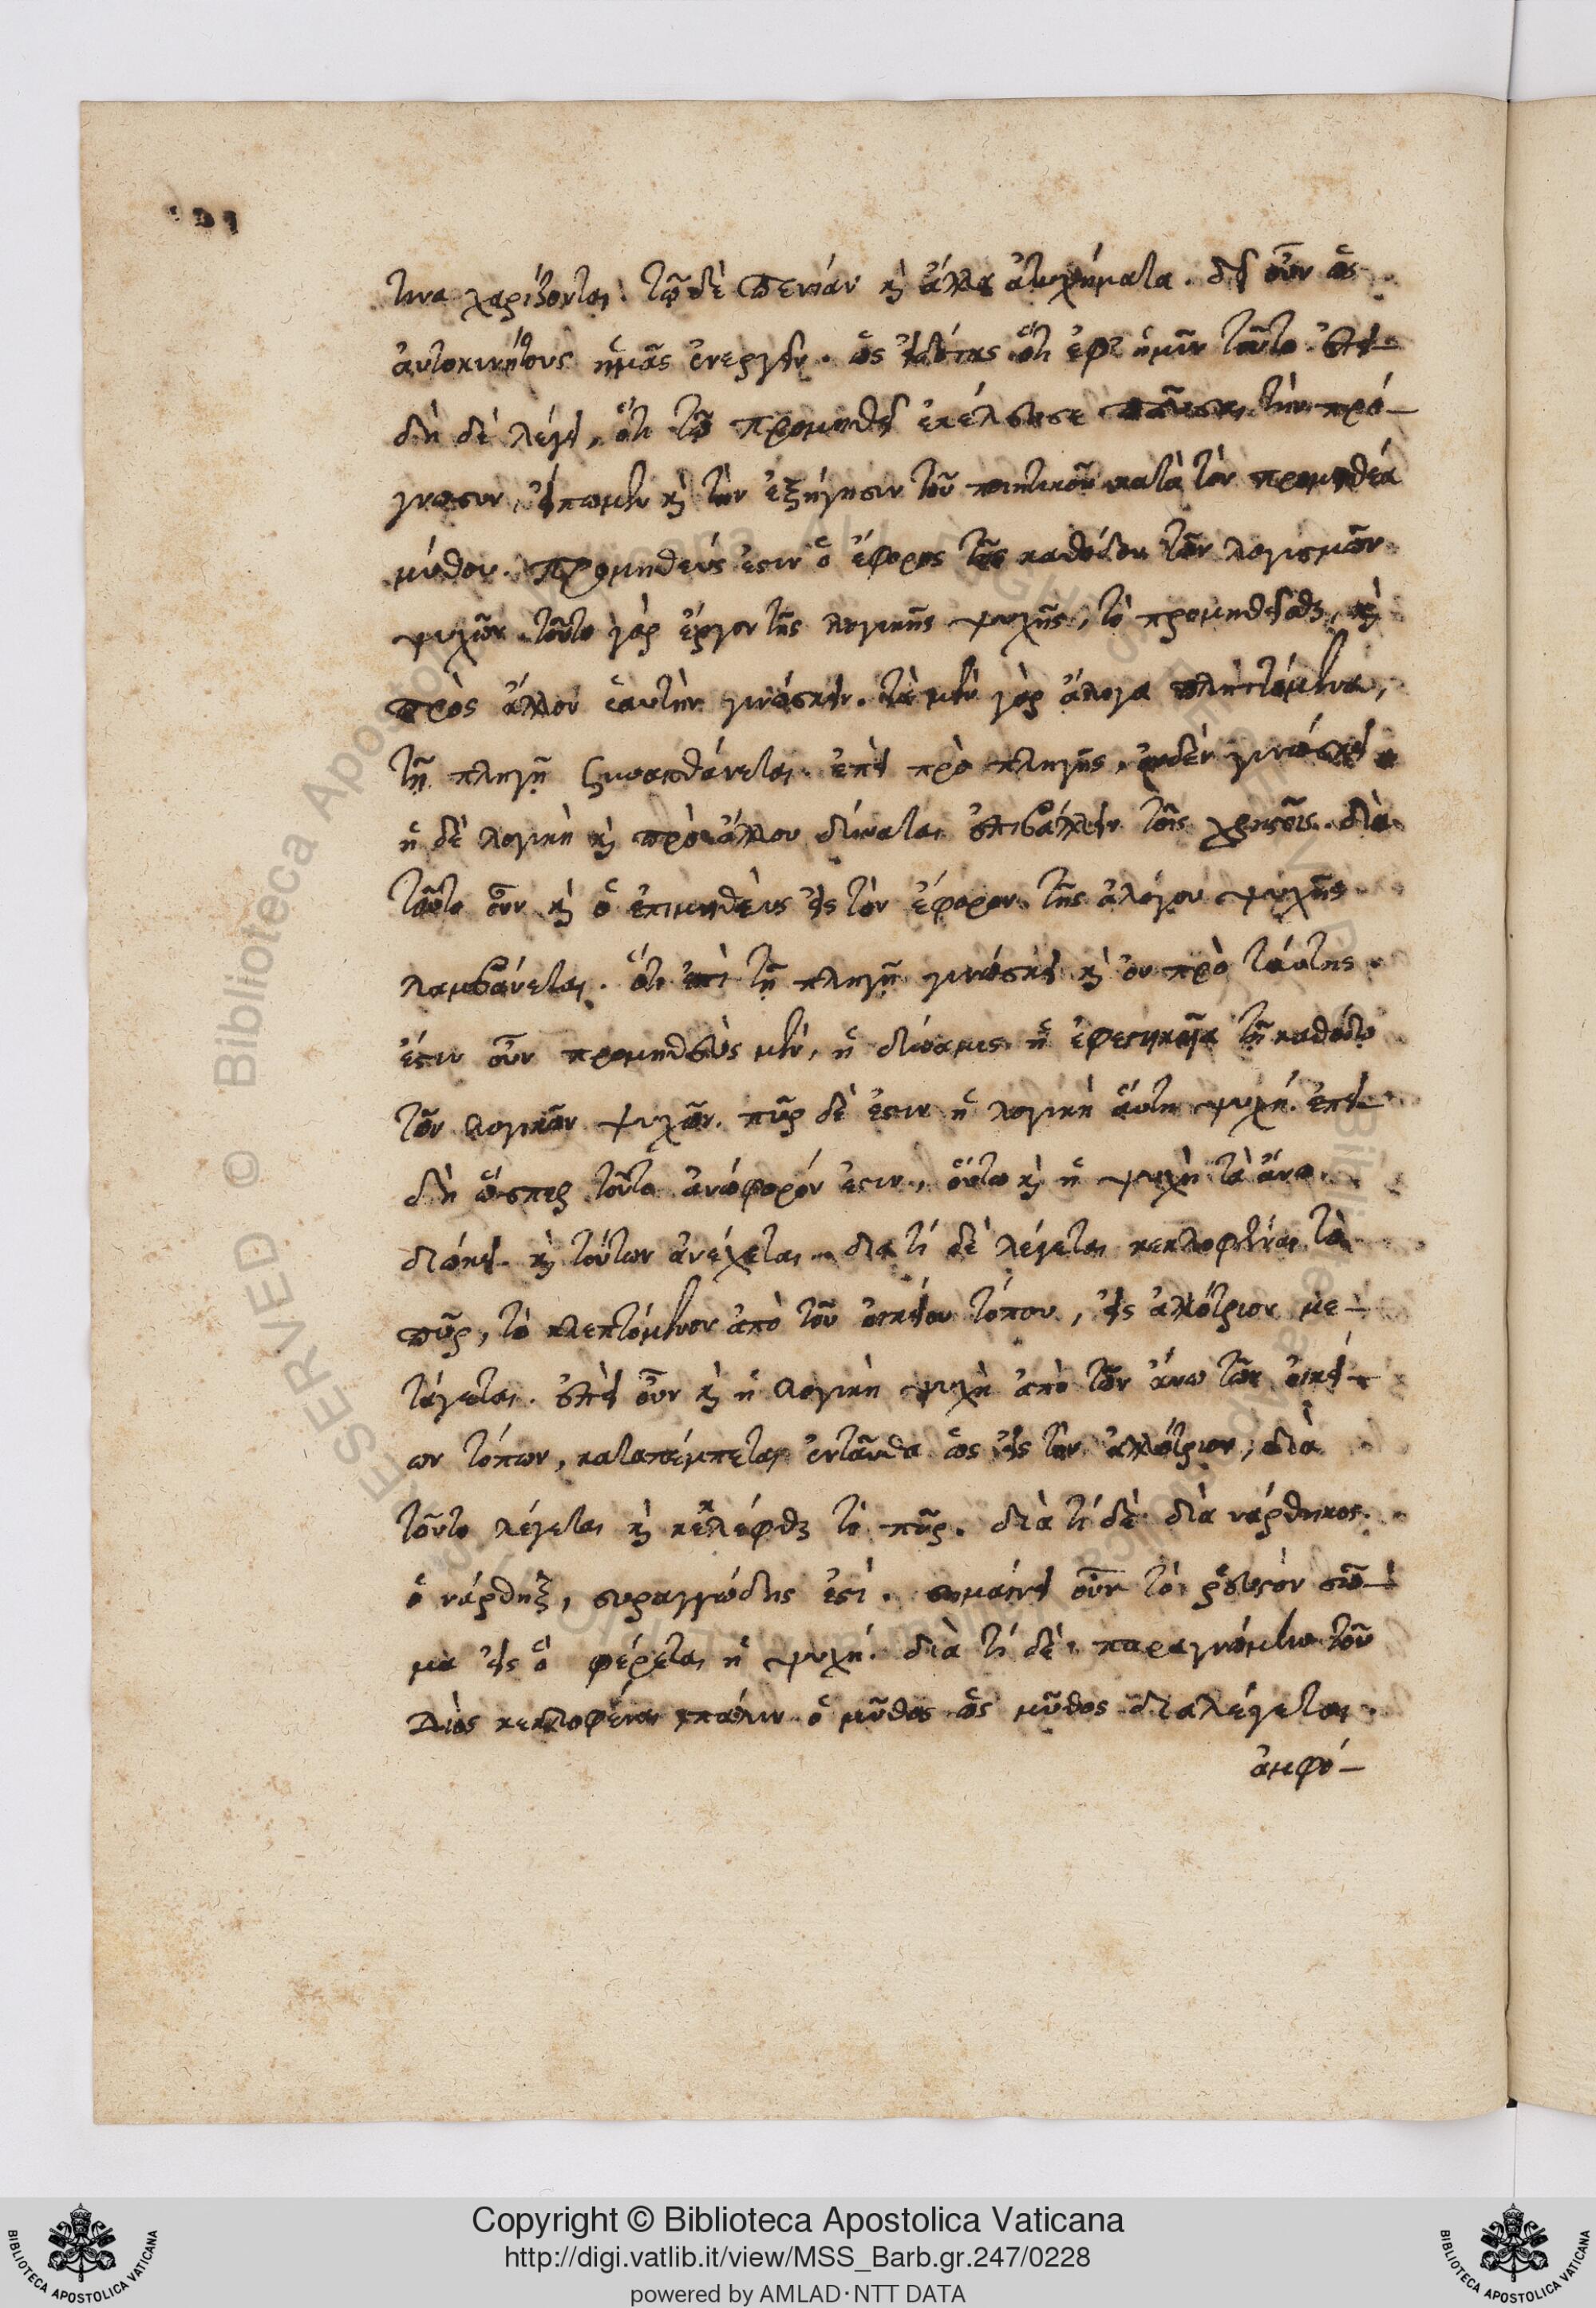 τινα χαρίζονται. τῷ δὲ πενίαν κὴ ἄλλα ἀτυχήματα. δεῖ οὖν ὡς
αὐτοκινήτους ἡμᾶς ἐνεργεῖν. ὡς εἰδότας ὅτι ἐφ' ἡμῖν τοῦτο. ἐπει-
δὴ δὲ λέγει, ὅτι τῷ προμηθεῖ ἐκέλευσε παῦσαι τὴν πρό-
γνωσιν, εἴπωμεν κὴ τὴν ἐξήγησιν τοῦ ποιητικοῦ κατὰ τὸν προμηθέα
μύθου. προμηθεύς ἐστιν ὁ ἔφορος τῆς καθόδου τῶν λογισμῶν
ψυχῶν. τοῦτο γὰρ ἔργον τῆς λογικῆς ψυχῆς, τὸ προμηθεῖσθαι, κὴ
πρὸς ἄλλου ἑαυτὴν γινώσκειν. τὰ μὲν γὰρ ἄλογα πληττόμενα,
τῇ πληγῇ ξυναισθάνεται. ἐπεὶ πρὸ πληγῆς, οὐδὲν γινώσκει.
ἡ δὲ λογικὴ κὴ πρὸ ἄλλου δύναται ἐπιβάλλειν τοῖς χρηστοῖς. διὰ
τοῦτο οὖν κὴ ὁ ἐπιμηθεὺς εἰς τὸν ἔφορον τῆς ἀλόγου ψυχῆς
λαμβάνεται. ὅτι ἐπὶ τῇ πληγῇ γινώσκει κὴ οὐ πρὸ ταύτης.
ἔστιν οὖν προμηθεὺς μὲν, ἡ δύναμις ἡ ἐφεστηκυῖα τῇ καθόδῳ
τῶν λογικῶν ψυχῶν. πῦρ δέ ἐστιν ἡ λογικὴ αὕτη ψυχή. ἐπει-
δὴ ὥσπερ τοῦτο ἀνώφορόν ἐστιν, οὕτω κὴ ἡ ψυχὴ τὰ ἄνω
διώκει κὴ τούτων ἀνέχεται. διὰ τί δὲ λέγεται κεκλοφέναι τὸ
πῦρ, τὸ κλεπτόμενον ἀπὸ τοῦ οἰκείου τόπου, εἰς ἀλλότριον με-
τάγεται. ἐπεὶ οὖν κὴ ἡ λογικὴ ψυχὴ ἀπὸ τῶν ἄνω τῶν οἰκεί-
ων τόπων, καταπέμπεται ἐνταῦθα ὡς εἰς τὸν ἀλλότριον, διὰ
τοῦτο λέγεται κὴ κεκλέφθαι τὸ πῦρ. διὰ τί δὲ διὰ νάρθηκος.
ὁ νάρθηξ, συραγγώδης ἐστί. σημαίνει οὖν τὸ ῥευστὸν σῶ-
μα εἰς ὃ φέρεται ἡ ψυχή. διὰ τί δὲ παραγνώμην τοῦ
Διὸς κεκλοφέναι πάλιν ὁ μῦθος ὡς μῦθος διαλέγεται.
ἀμφό-
Copyright © Biblioteca Apostolica Vaticana
http://digi.vatlib.it/view/MSS_Barb.gr.247/0228
powered by AMLAD·NTT DATA